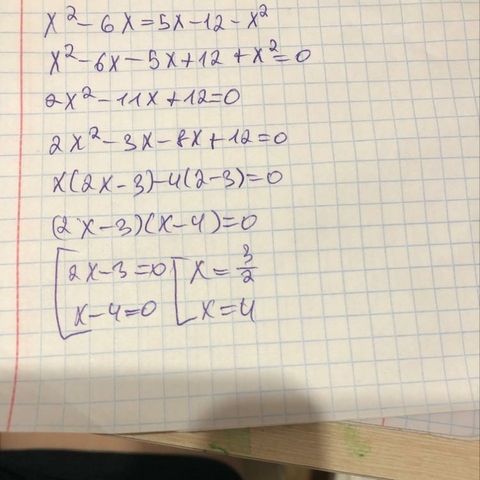 x² - 6x = 5x - 12 - x²
x² - 6x - 5x + 12 + x² = 0
2x² - 11x + 12 = 0
2x² - 3x - 8x + 12 = 0
x(2x - 3) - 4(2 - 3) = 0
(2x - 3)(x - 4) = 0
[2x - 3 = 0 [x = 3/2
x - 4 = 0 x = 4